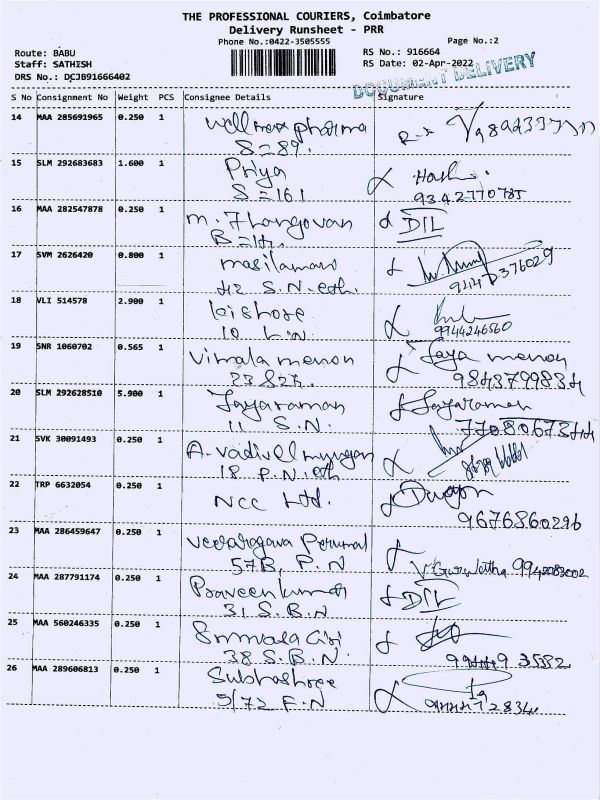 THE PROFESSIONAL COURIERS, Coimbatore
Delivery Runsheet - PRR
Phone No.:0422-3505555
Page No.:2
Route: BABU
RS No.: 916664
Staff: SATHISH
RS Date: 02-Apr-2022
DRS No.: DCJB91666402
DOCUMENT DELIVERY
S No Consignment No Weight PCS Consignee Details Signature
14 MAA 285691965 0.250 1 Wellmax pharma
S=89.
15 SLM 292683683 1.600 1 Priya
S=161 9342770785
16 MAA 282547878 0.250 1 M. Thangovan DIL
17 SVM 2626420 0.800 1 masilamani
42 S.N. 9442376029
18 VLI 514578 2.900 1 kishore
10 9944246560
19 SNR 1060702 0.565 1 Vimala menon Jaya menon
9843799834
20 SLM 292628510 5.900 1 Jayaraman Jayaraman
11 S.N.
21 SVK 30091493 0.250 1 A. Vadivel murugan
18 P.N.
22 TRP 6632054 0.250 1 NCC Ltd.
9676860296
23 MAA 286459647 0.250 1 Veeraragava Perumal
57B, P.N 9942083002
24 MAA 287791174 0.250 1 Praveen kumar DIL
31 S.B.N
25 MAA 560246335 0.250 1
38 S.B.N.
26 MAA 289606813 0.250 1 Subhashree
5/72 F.N